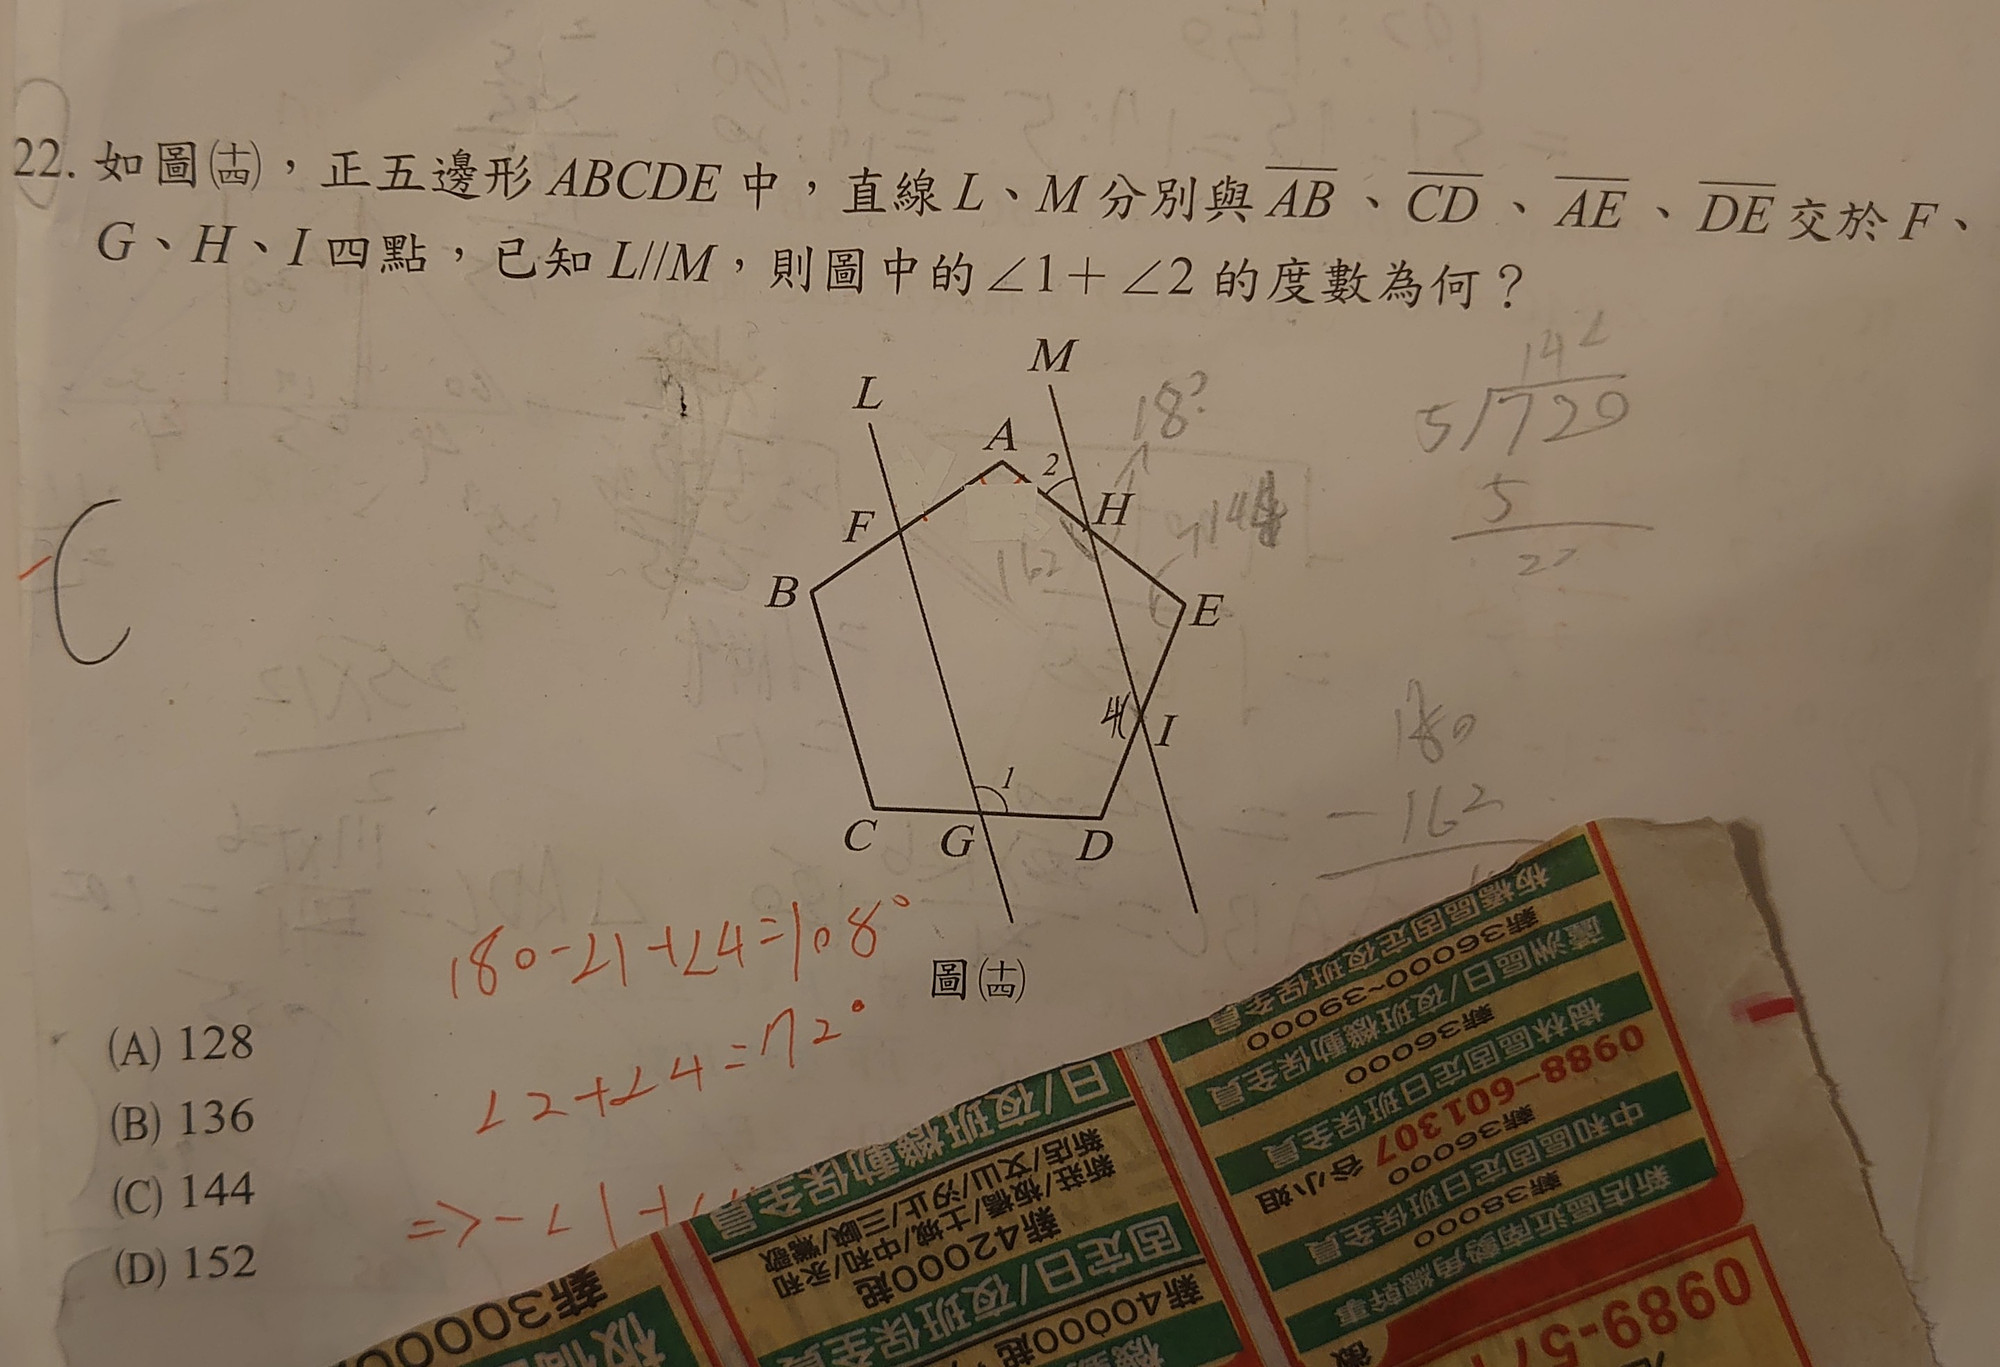 22. 如圖(十四)，正五邊形 ABCDE 中，直線 L、M 分別與 AB、CD、AE、DE 交於 F、
G、H、I 四點，已知 L//M，則圖中的∠1+∠2 的度數為何？
M
L
A
2
H
F
B
E
I
1
C
G
D
4
18°
162
144
5)720
5
180
-162
圖(十四)
180-∠1+∠4=108°
∠2+∠4=72°
(A) 128
(B) 136
(C) 144
(D) 152
日/夜班機動保全員
新店/文山/汐止/三峽/鶯歌
新莊/板橋/土城/中和/永和
新42000起
固定日/夜班保全員
新40000起
板橋區固定夜班保全員
新36000~39000
蘆洲區日/夜班機動保全員
新36000
樹林區固定日班保全員
0988-601307 谷小姐
新36000
中和區固定日班保全員
新38000
新店區近南勢角總幹事